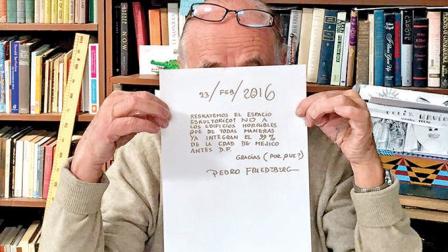 23/FEB/2016
RESCATEMOS EL ESPACIO
ESCULTORICO! NO A
LOS EDIFICIOS HORRIBLES
QUE DE TODAS MANERAS
YA INTEGRAN EL 99%
DE LA CDAD DE MEJICO
ANTES D.F.
GRACIAS (POR QUE?)
PEDRO FRIEDEBERG